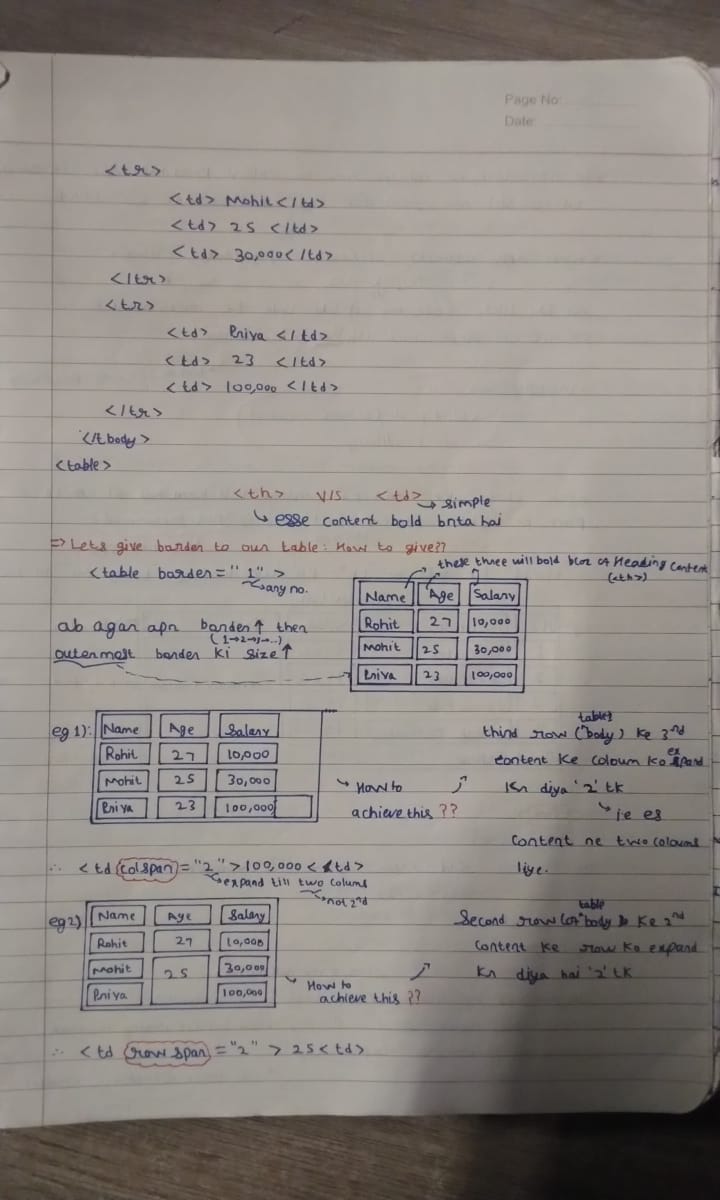 Page No:
Date:
<tr>
<td> Mohit </td>
<td> 25 </td>
<td> 30,000 </td>
</tr>
<tr>
<td> Priya </td>
<td> 23 </td>
<td> 100,000 </td>
</tr>
</tbody>
<table>
<th> v/s <td> → simple
↳ esse content bold bnta hai
=> Lets give border to our table: How to give??
<table border="1">
↳ any no.
these three will bold bcoz of Heading content
(<th>)
Name Age Salary
Rohit 27 10,000
Mohit 25 30,000
Priya 23 100,000
ab agar apn border↑ then
(1→2→)
outermost border ki size↑
eg 1):
Name Age Salary
Rohit 27 10,000
Mohit 25 30,000
Priya 23 100,000
↳ How to
achieve this ??
third row (table body) ke 3nd
content ke coloum ko expand
kr diya '2' tk
↳ ie es
content ne two coloums
liye.
∴ <td colspan="2">100,000</td>
↳ expand till two colums
↳ not 2nd
eg 2)
Name Age Salary
Rohit 27 10,000
Mohit 25 30,000
Priya 100,000
↳ How to
achieve this ??
Second row (of table body) ke 2nd
content ke row ko expand
kr diya hai '2' tk
∴ <td rowspan="2"> 25<td>